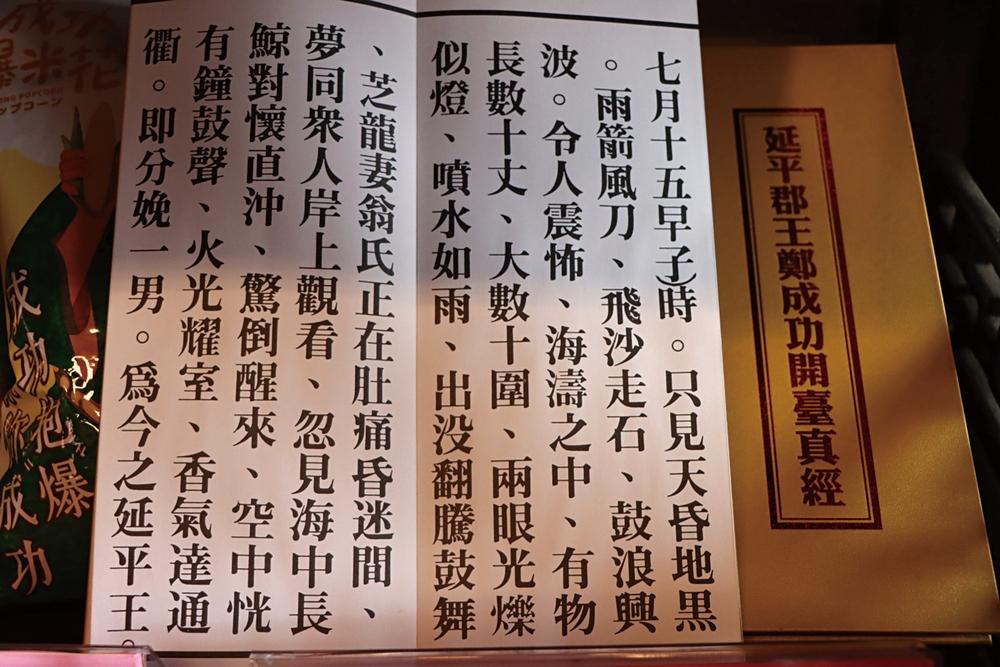 延平郡王鄭成功開臺真經
七月十五早子時。只見天昏地黑
。雨箭風刀、飛沙走石、鼓浪興
波。令人震怖、海濤之中、有物
長數十丈、大數十圍、兩眼光爍
似燈、噴水如雨、出没翻騰鼓舞
、芝龍妻翁氏正在肚痛昏迷間、
夢同衆人岸上觀看、忽見海中長
鯨對懷直沖、驚倒醒來、空中恍
有鐘鼓聲、火光耀室、香氣達通
衢。即分娩一男。爲今之延平王。
成功
爆米花
成功
成功